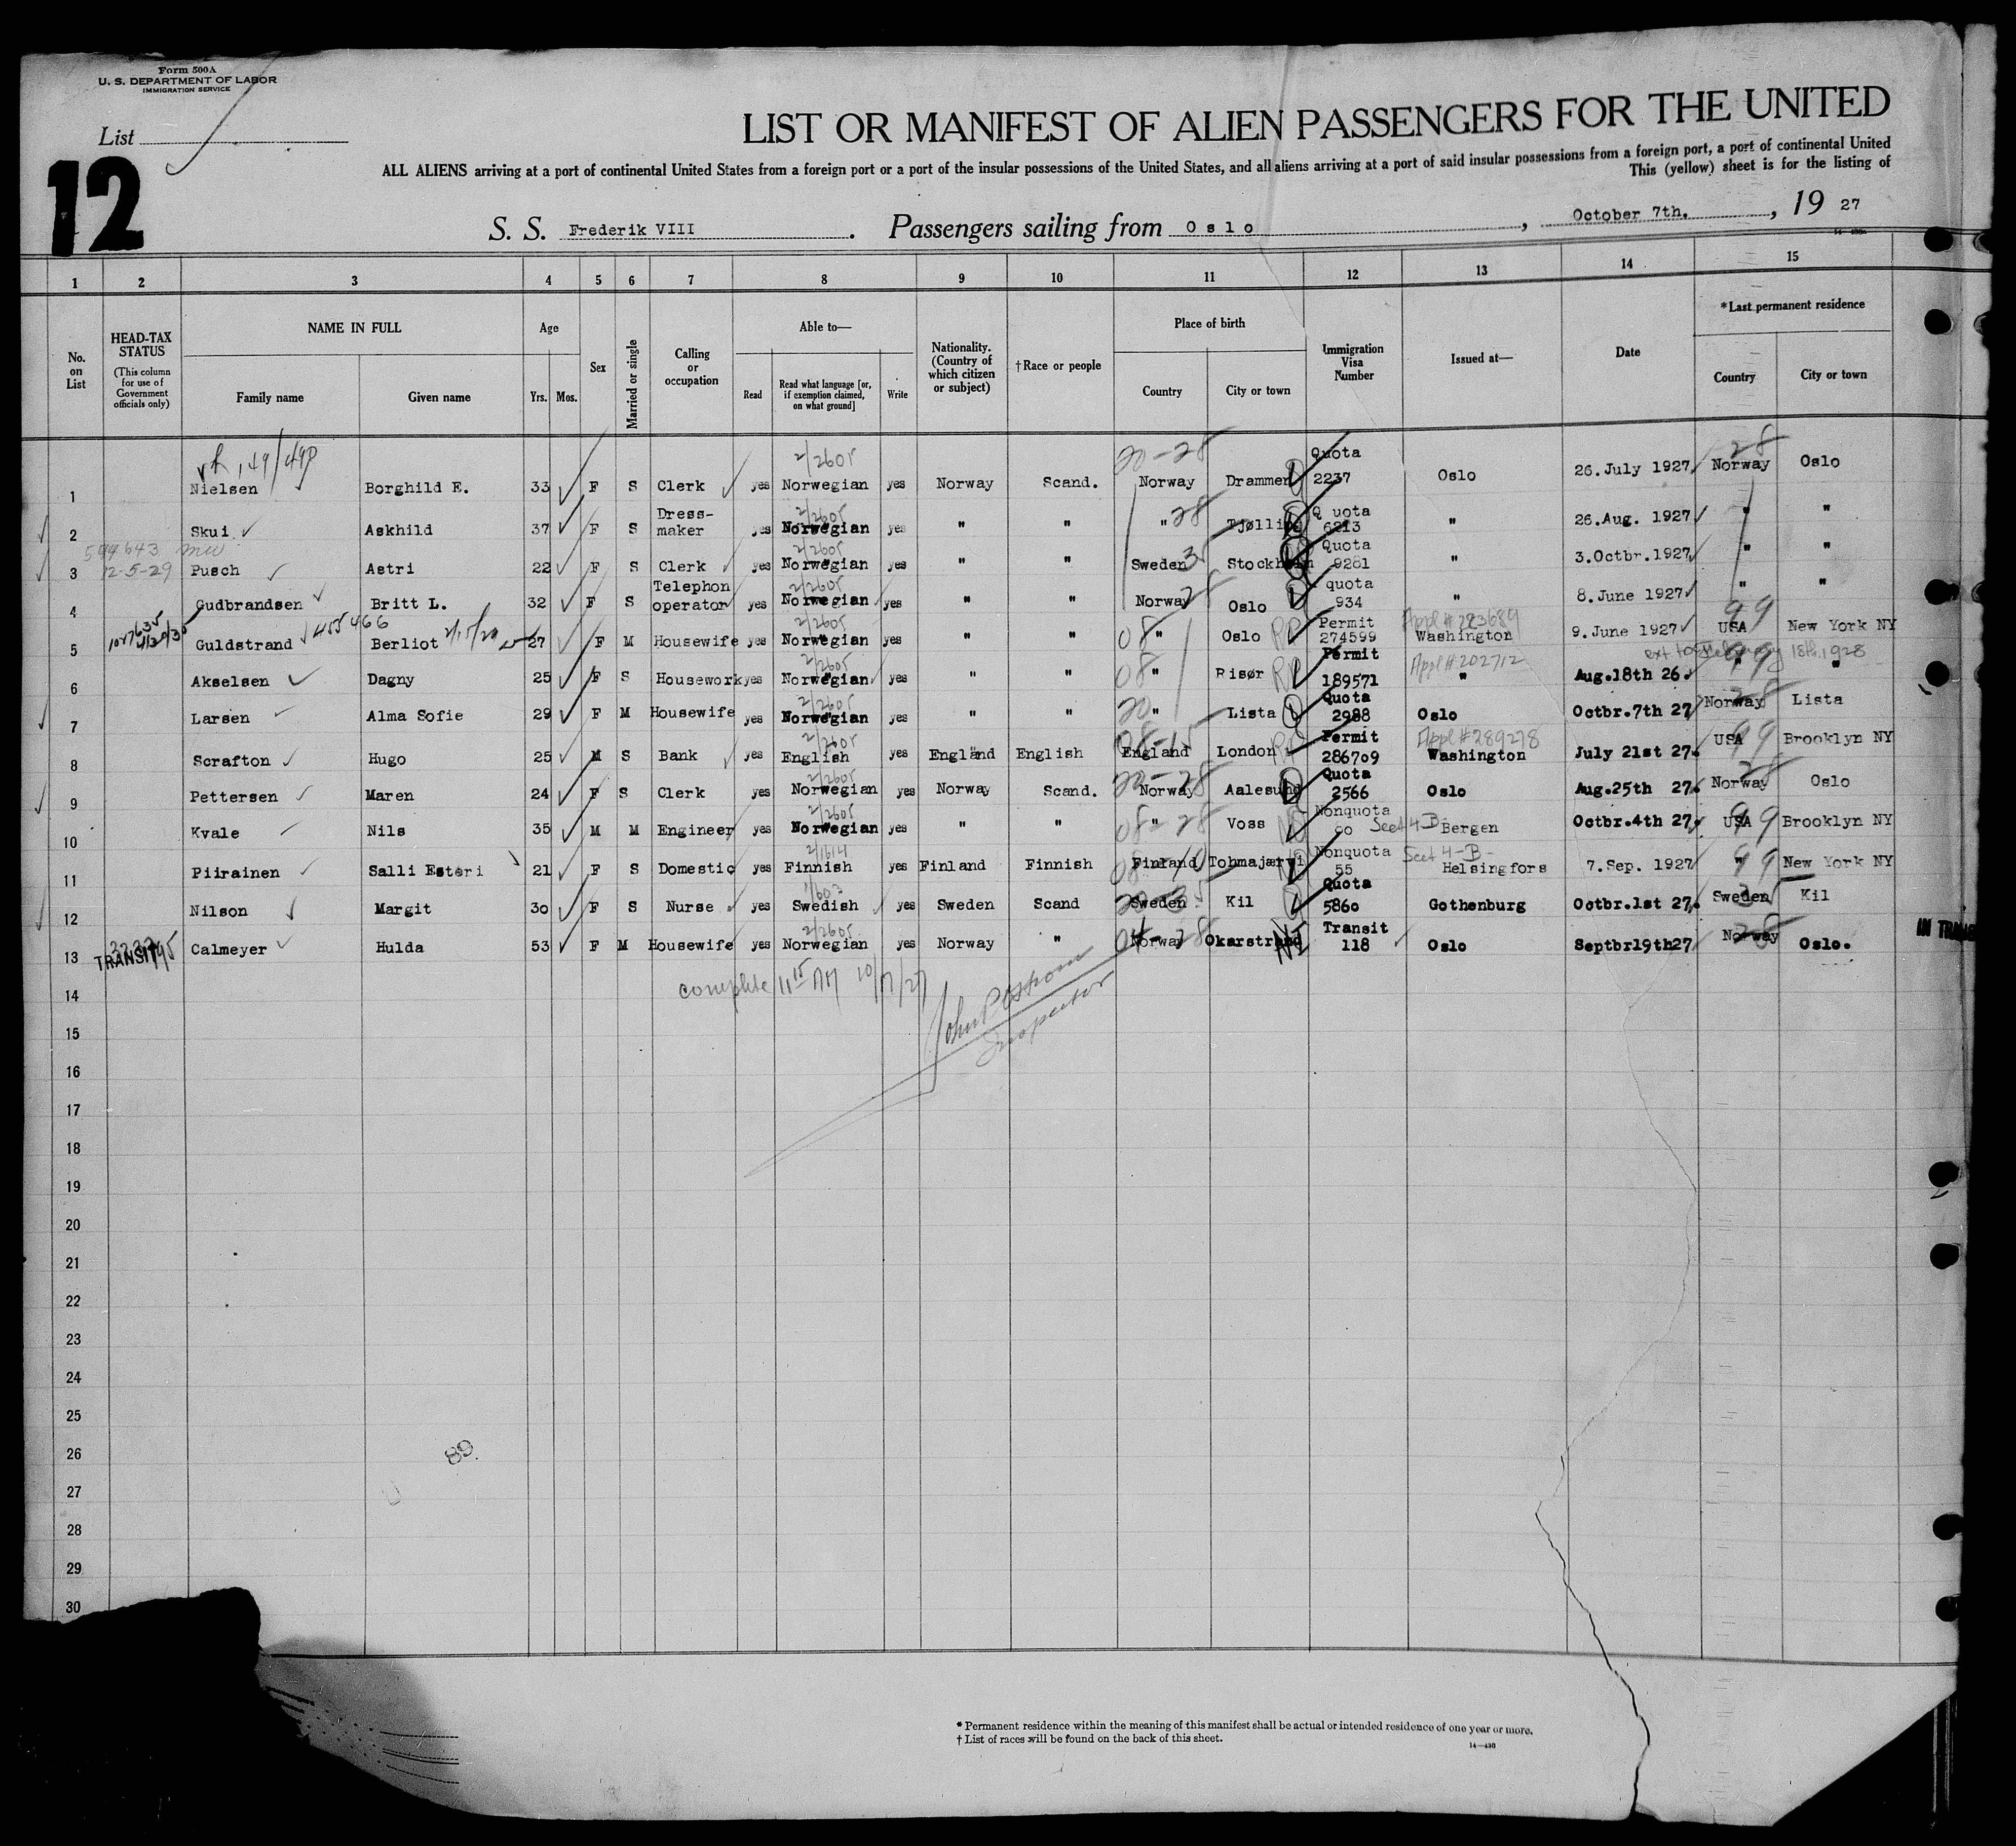 Form 500A
U. S. DEPARTMENT OF LABOR
IMMIGRATION SERVICE
List
12
LIST OR MANIFEST OF ALIEN PASSENGERS FOR THE UNITED
ALL ALIENS arriving at a port of continental United States from a foreign port or a port of the insular possessions of the United States, and all aliens arriving at a port of said insular possessions from a foreign port, a port of continental United
This (yellow) sheet is for the listing of
S. S. Frederik VIII . Passengers sailing from Oslo , October 7th. , 19 27
1 2 3 4 5 6 7 8 9 10 11 12 13 14 15
No. on List
HEAD-TAX STATUS
(This column for use of Government officials only)
NAME IN FULL
Family name Given name
Age
Yrs. Mos.
Sex
Married or single
Calling or occupation
Able to—
Read
Read what language [or, if exemption claimed, on what ground]
Write
Nationality. (Country of which citizen or subject)
†Race or people
Place of birth
Country City or town
Immigration Visa Number
Issued at—
Date
*Last permanent residence
Country City or town
1 Nielsen Borghild E. 33 F S Clerk yes 2/2605 Norwegian yes Norway Scand. 20-28 Norway Drammen Quota 2237 Oslo 26.July 1927 28 Norway Oslo
2 Skui Askhild 37 F S Dress-maker yes 2/2605 Norwegian yes " " " 28 Tjølling Quota 6213 " 26.Aug. 1927 " "
3 594643 12-5-29 Pusch Astri 22 F S Clerk yes 2/2605 Norwegian yes " " Sweden 35 Stockholm Quota 9281 " 3.Octbr.1927 " "
4 Gudbrandsen Britt L. 32 F S Telephon operator yes 2/2605 Norwegian yes " " Norway 28 Oslo quota 934 " 8.June 1927 " "
5 Guldstrand 455466 Berliot 27 F M Housewife yes 2/2605 Norwegian yes " " 08 " Oslo RP Permit 274599 Washington 9.June 1927 99 USA New York NY
6 Akselsen Dagny 25 F S Housework yes 2/2605 Norwegian yes " " 08 " Risør RP Permit 189571 Appl #202712 " Aug.18th 26. ext to February 18th, 1928 99 " "
7 Larsen Alma Sofie 29 F M Housewife yes 2/2605 Norwegian yes " " 20 " Lista Quota 2988 Oslo Octbr.7th 27 28 Norway Lista
8 Scrafton Hugo 25 M S Bank yes 2/2605 English yes England English 08-15 England London RP Permit 286709 Appl #289278 Washington July 21st 27. 99 USA Brooklyn NY
9 Pettersen Maren 24 F S Clerk yes 2/2605 Norwegian yes Norway Scand. 20-28 Norway Aalesund Quota 2566 Oslo Aug.25th 27. 28 Norway Oslo
10 Kvale Nils 35 M M Engineer yes 2/2605 Norwegian yes " " 08-28 " Voss Nonquota 90 Sect 4-B- Bergen Octbr.4th 27. 99 USA Brooklyn NY
11 Piirainen Salli Esteri 21 F S Domestic yes 2/1614 Finnish yes Finland Finnish 08-10 Finland Tohmajærvi Nonquota 55 Sect 4-B- Helsingfors 7.Sep. 1927 99 " New York NY
12 Nilson Margit 30 F S Nurse yes Swedish yes Sweden Scand 20-35 Sweden Kil Quota 5860 Gothenburg Octbr.1st 27. 35 Sweden Kil
13 TRANSIT Calmeyer Hulda 53 F M Housewife yes 2/2605 Norwegian yes Norway " 04-28 Norway Okarstrand Transit 118 Oslo Septbr19th27 28 Norway Oslo.
complete 11 15 AM 10/17/27
Inspector
14
15
16
17
18
19
20
21
22
23
24
25
26
27
28
29
30
89.
* Permanent residence within the meaning of this manifest shall be actual or intended residence of one year or more.
† List of races will be found on the back of this sheet.
14—430